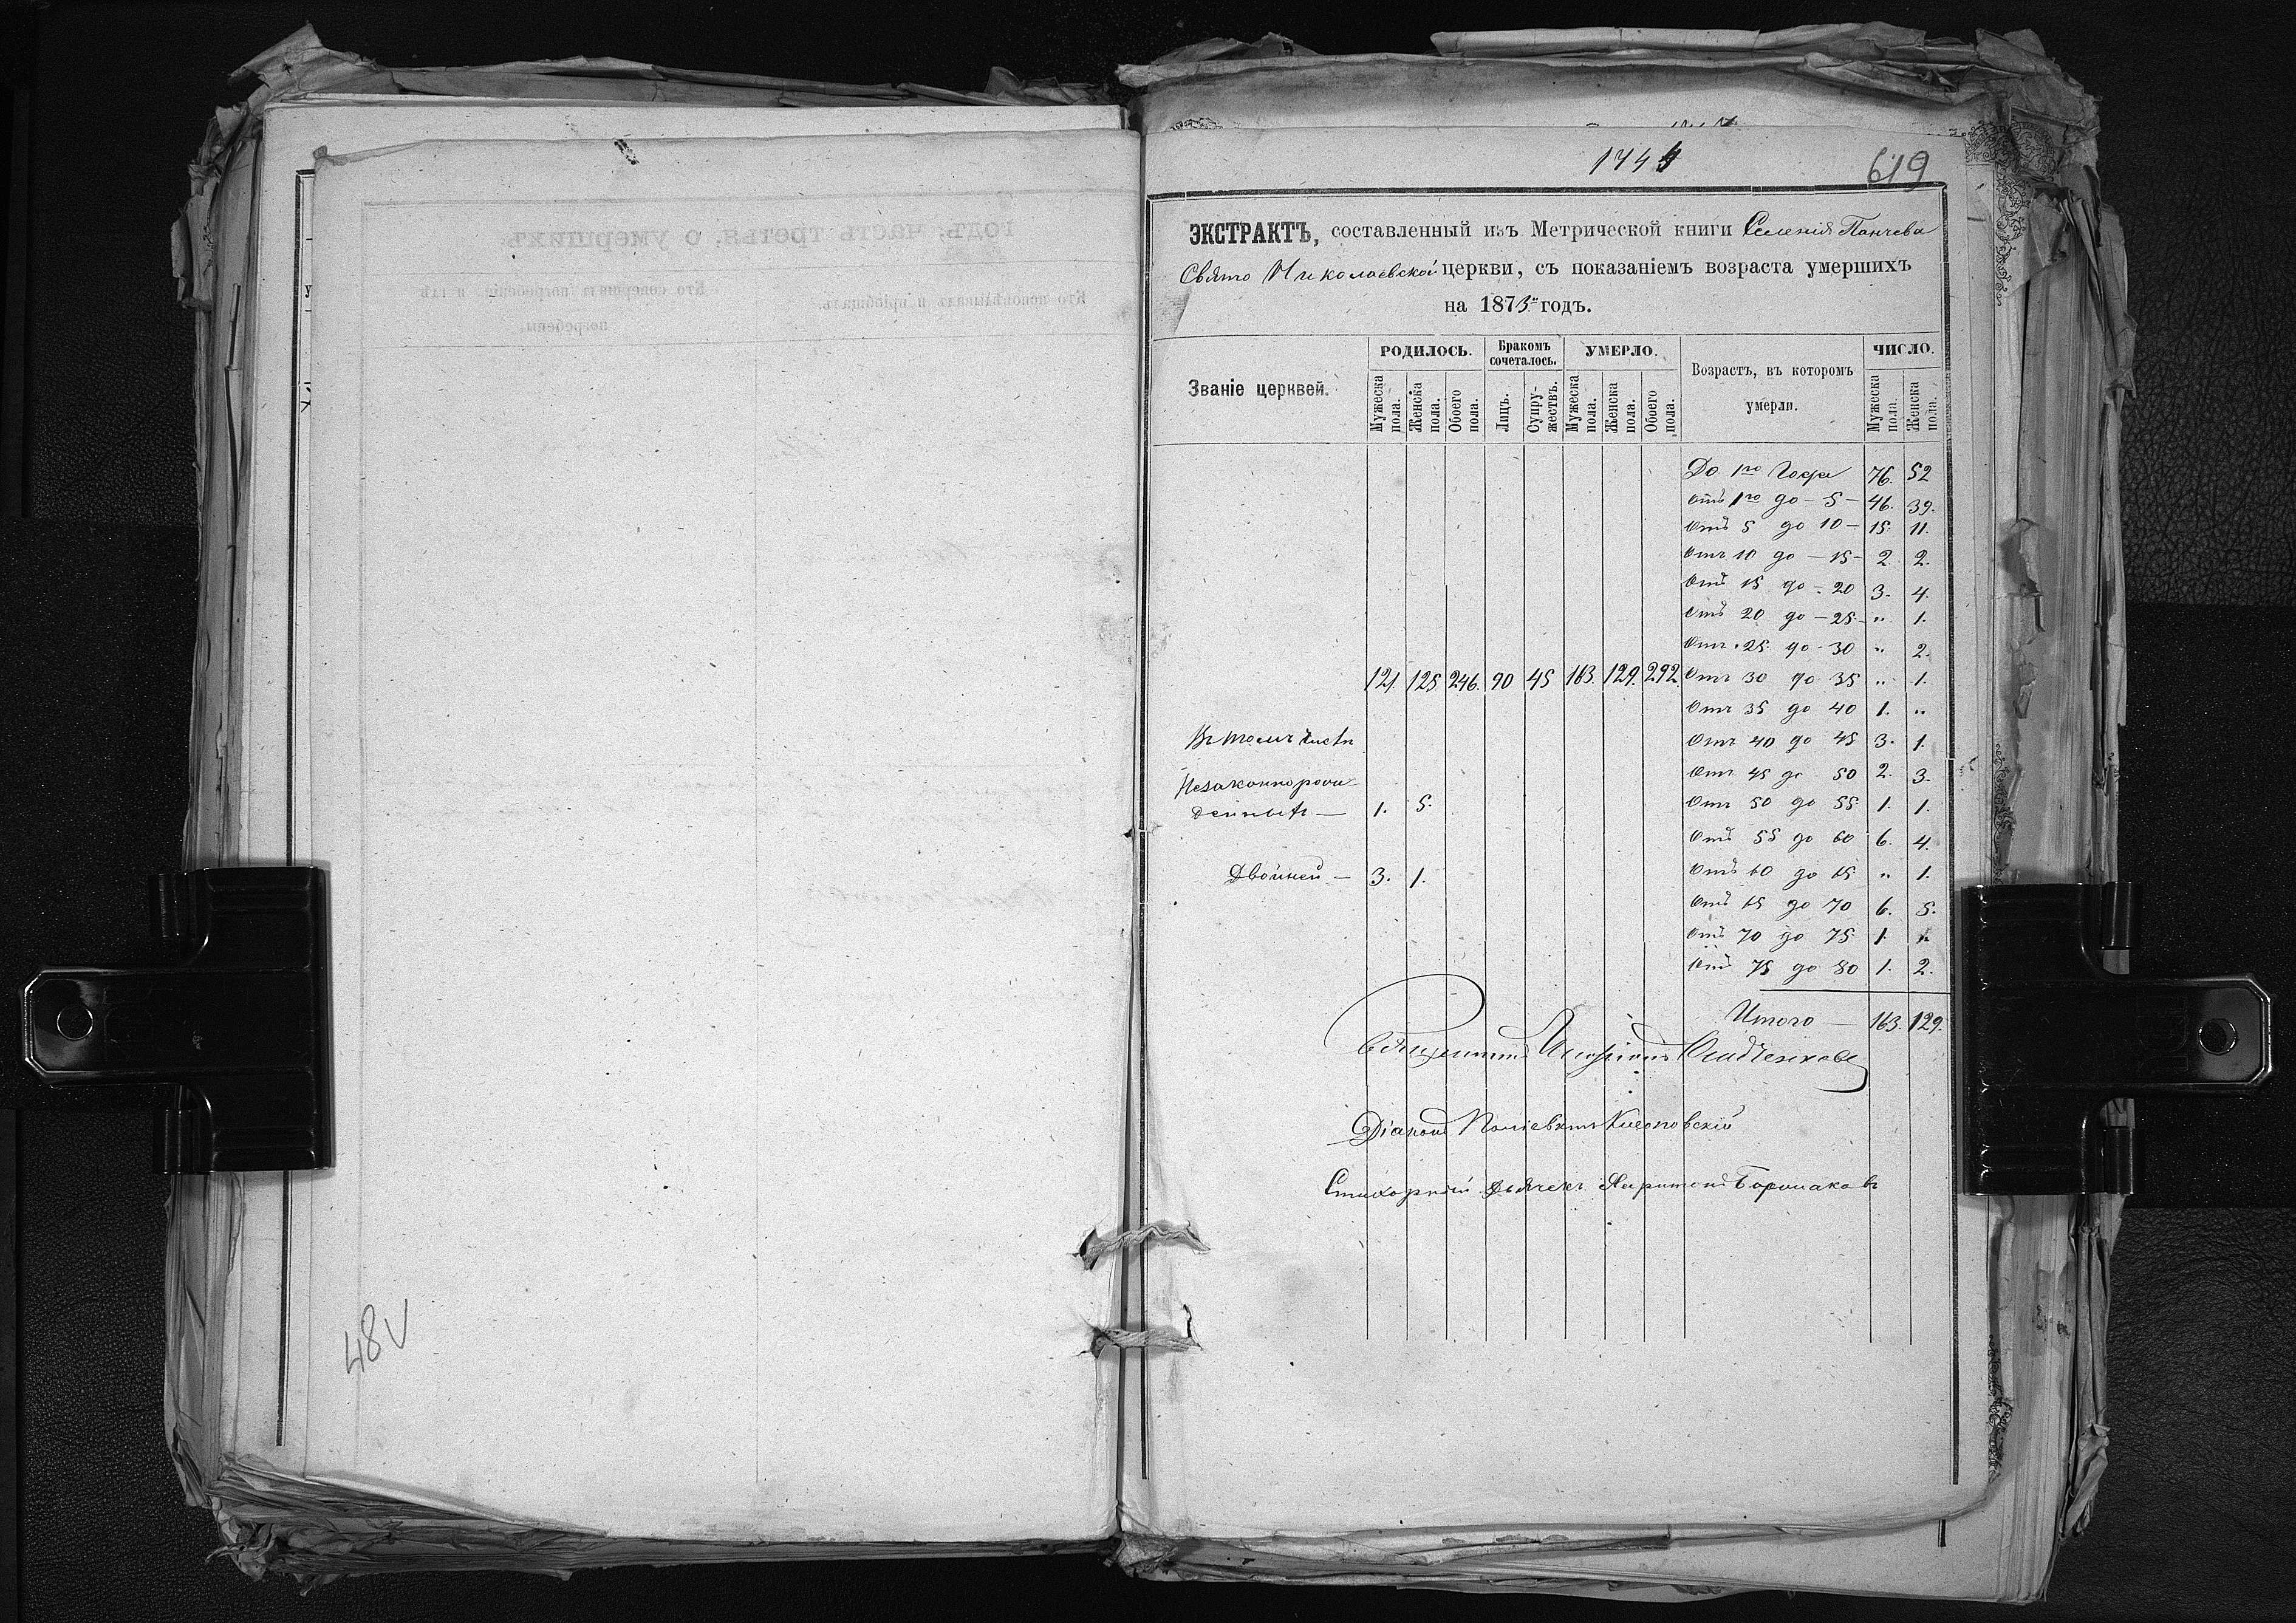 48 V
1744
619
ЭКСТРАКТЪ, составленный изъ Метрической книги Селенія Панчева
Свято Николаевской церкви, съ показаніемъ возраста умершихъ
на 1873й годъ.
Званіе церквей.
РОДИЛОСЬ.
Мужеска пола.
Женска пола.
Обоего пола.
Бракомъ сочеталось.
Лицъ.
Супружествъ.
УМЕРЛО.
Мужеска пола.
Женска пола.
Обоего пола.
Возрастъ, въ которомъ
умерли.
ЧИСЛО.
Мужеска пола.
Женска пола.
До 1го Года 76. 52
Отъ 1го до - 5 - 46. 39.
Отъ 5 до 10 - 15. 11.
Отъ 10 до - 15 - 2. 2.
Отъ 15 до - 20 3. 4.
Отъ 20 до - 25 - " 1.
Отъ 25 до - 30 " 2.
121. 125 246. 90 45 163. 129. 292. Отъ 30 до 35 " 1.
Отъ 35 до 40 1. "
Въ томъ числѣ Отъ 40 до 45 3. 1.
Незаконнорож- Отъ 45 до 50 2. 3.
денныхъ — 1. 5. Отъ 50 до 55 1. 1.
Отъ 55 до 60 6. 4.
Двойней — 3. 1. Отъ 60 до 65 " 1.
Отъ 65 до 70 6. 5.
Отъ 70 до 75 1. "
Отъ 75 до 80 1. 2.
Итого — 163. 129.
Священникъ
Діаконъ Поліевктъ
Стихарный Дьячекъ Харитонъ